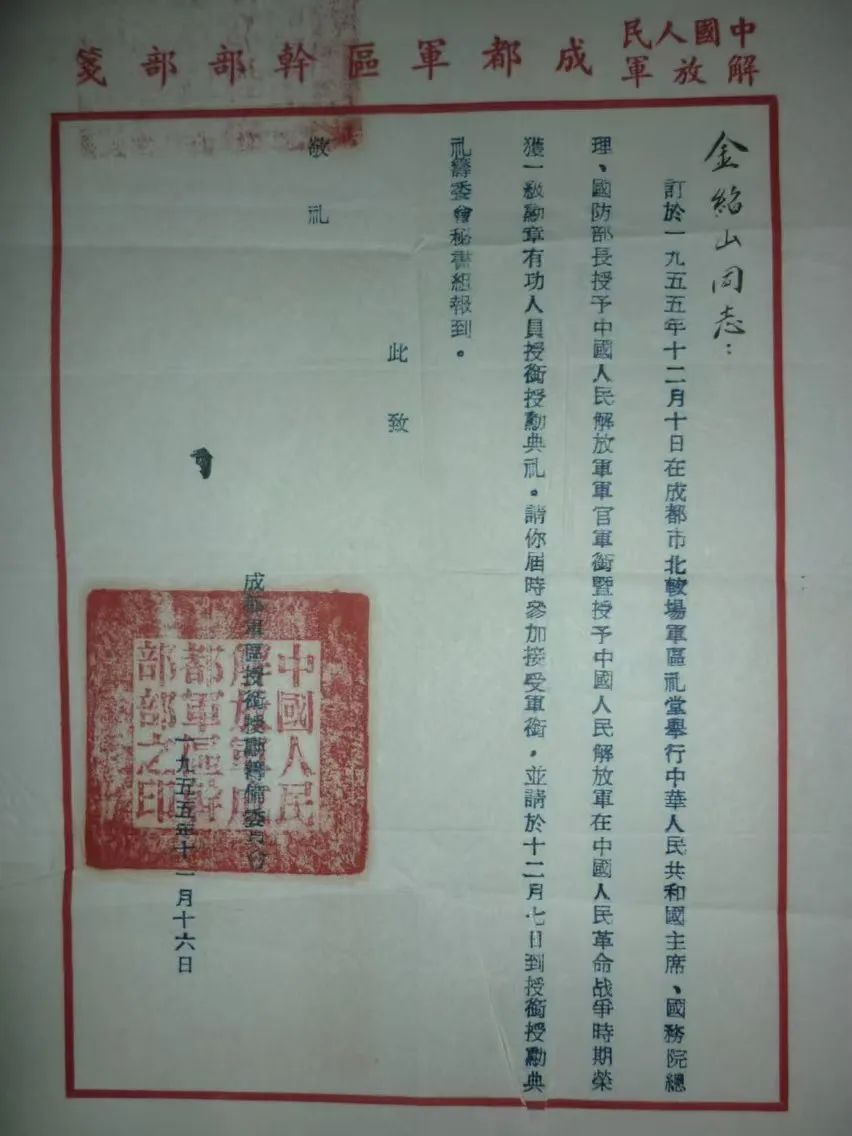 中國人民解放軍成都軍區幹部部箋
金紹山同志:
訂於一九五五年十二月十日在成都市北較場軍區礼堂舉行中華人民共和國主席、國務院總
理、國防部長授予中國人民解放軍軍官軍銜暨授予中國人民解放軍在中國人民革命战爭時期榮
獲一級勳章有功人員授銜授勳典礼。請你届時參加接受軍銜,並請於十二月七日到授銜授勳典
礼籌委會秘書組報到。
此致
敬礼
成都軍區授銜授勳籌備委員會
一九五五年十一月十六日
中國人民
解放軍成
都軍區幹
部部之印